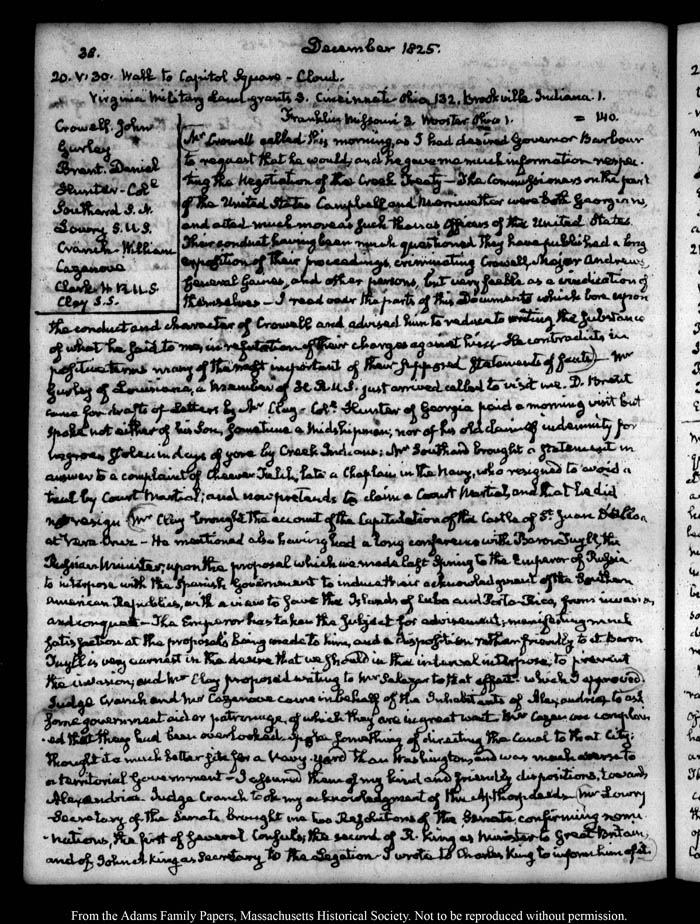 38. December 1825.
20. V:30. Walk to Capitol Square - Cloud.
Virginia Military Land grants 3. Cincinnati Ohio, 132. Brookville Indiana. 1.
Franklin Missouri 3 Wooster Ohio 1. = 140.
Crowell. John
Gurley
Brent. Daniel
Hunter - Col.
Southard S. N.
Lowry S. U.S.
Cranch. William
Cazenove
Clark H.R.U.S
Clay S.S.
Mr Crowell called this morning, as I had desired Governor Barbour
to request that he would, and he gave me much information respec-
ting the Negotiation of the Creek Treaty - The Commissioners on the part
of the United States Campbell and Merriwether were both Georgians,
and acted much more as such than as Officers of the United States.
Their conduct having been much questioned they have published a long
exposition of their proceedings, criminating Crowell, Major Andrews
General Gaines, and other persons, but very feeble as a vindication of
themselves - I read over the parts of this Document which bore upon
the conduct and character of Crowell and advised him to reduce to writing the substance
of what he said to me, in refutation of their charges against him. He contradicts in
positive terms many of the most important of their supposed statements of facts - Mr
Gurley of Louisiana, a member of H.R.U.S. just arrived called to visit me. D. Brent
came for drafts of Letters by Mr Clay - Col. Hunter of Georgia paid a morning visit but
spoke not either of his Son, sometime a Midshipman, nor of his old claim of indemnity for
negroes stolen in days of yore by Creek Indians: Mr Southard brought a statement in
answer to a complaint of Cheever Felch, late a Chaplain in the Navy, who resigned to avoid a
trial by Court Martial; and now pretends to claim a Court Martial, and that he did
not resign. Mr Clay brought the account of the Capitulation of the Castle of St. Juan D'Ulloa
at Vera Cruz - He mentioned also having had a long conference with Baron Tuyll, the
Russian Minister, upon the proposal which we made last Spring to the Emperor of Russia
to interpose with the Spanish Government to induce their acknowledgment of the Southern
American Republics, with a view to save the Islands of Cuba and Porto-Rico, from invasion
and conquest - The Emperor has taken the subject for advisement; manifesting much
satisfaction at the proposals being made to him, and a disposition rather friendly to it. Baron
Tuyll is very earnest in the desire that we should in the interval interpose, to prevent
the invasion; and Mr Clay proposed writing to Mr Salazar to that effect which I approved.
Judge Cranch and Mr Cazenove came in behalf of the Inhabitants of Alexandria to ask
some government aid or patronage, of which they are in great want. Mr Cazenove complain
ed that they had been overlooked. Spoke something of directing the Canal to that City:
thought it a much better site for a Navy-yard than Washington, and was much averse to
a territorial Government - I assured them of my kind and friendly dispositions, towards
Alexandria. Judge Cranch took my acknowledgment of the Apthorp deeds. Mr Lowry
Secretary of the Senate brought me two Resolutions of the Senate confirming nomi
-nations, the first of several Consuls, the second of R. King as Minister to Great Britain,
and of John A. King as Secretary to the Legation. I wrote to Charles King to inform him of it.
From the Adams Family Papers, Massachusetts Historical Society. Not to be reproduced without permission.